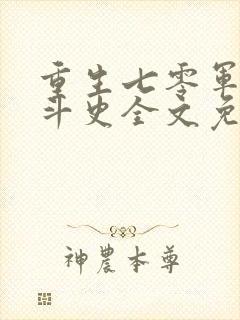 重生七零軍
斗史全文免
神農本尊